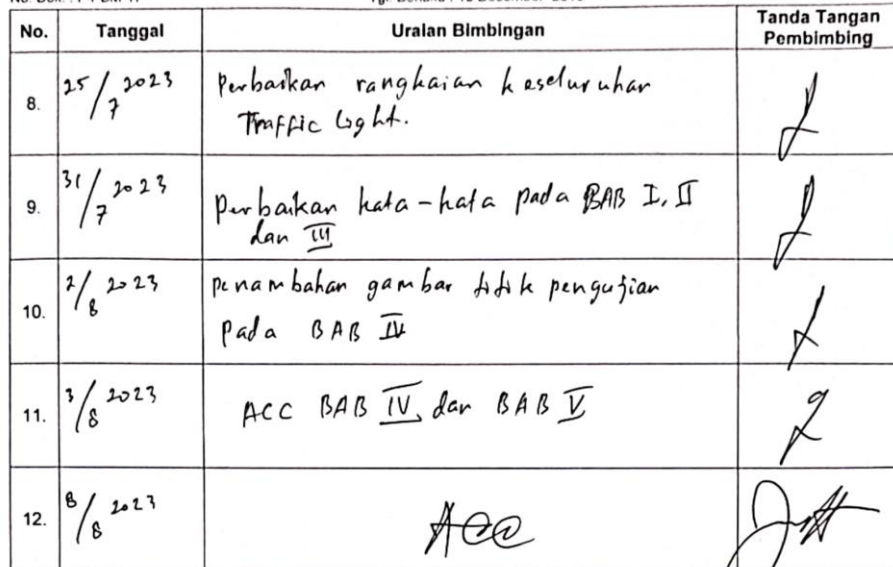 No. Tanggal Uraian Bimbingan Tanda Tangan Pembimbing
8. 25/7 2023 Perbaikan rangkaian keseluruhan
Traffic Light.
9. 31/7 2023 Perbaikan kata-kata pada BAB I, II
dan III
10. 2/8 2023 penambahan gambar titik pengujian
pada BAB IV
11. 3/8 2023 ACC BAB IV dan BAB V
12. 8/8 2023 ACC